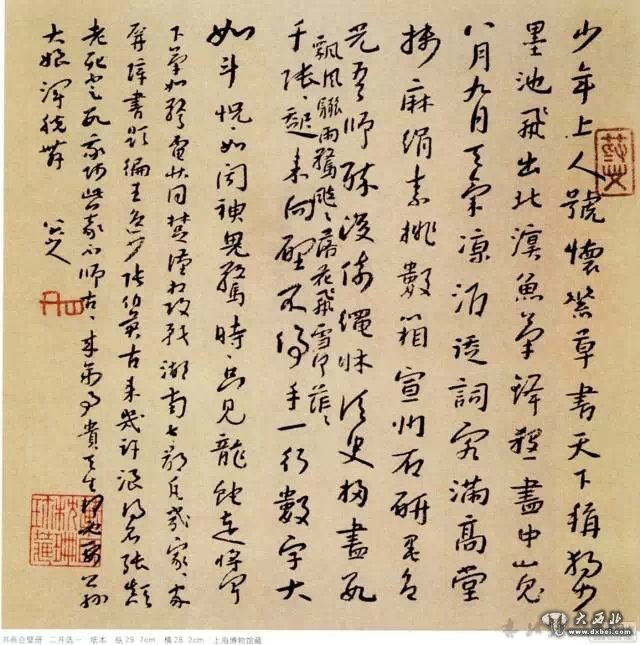 少年上人號懷素草書天下稱獨步
墨池飛出北溟魚筆鋒殺盡中山兔
八月九月天氣涼酒徒詞客滿高堂
牋麻絹素排數箱宣州石硯墨色
光吾師醉後倚繩床須臾掃盡數
千張飄風驟雨驚颯〻落花飛雪何茫〻
起來向壁不停手一行數字大
如斗怳〻如聞神鬼驚時〻只見龍蛇走
如驚電狀同楚漢相攻戰湖南七郡凡幾家〻家
屏障書題徧王逸少張伯英古來幾許浪得名張顛
老死不足數我師此義不師古〻來萬事貴天生何必要公孫
大娘渾脫舞
八大山人
书画合璧册 二开选一 纸本 纵29.7cm 横28.2cm 上海博物馆藏
大西北
www.dxbei.com